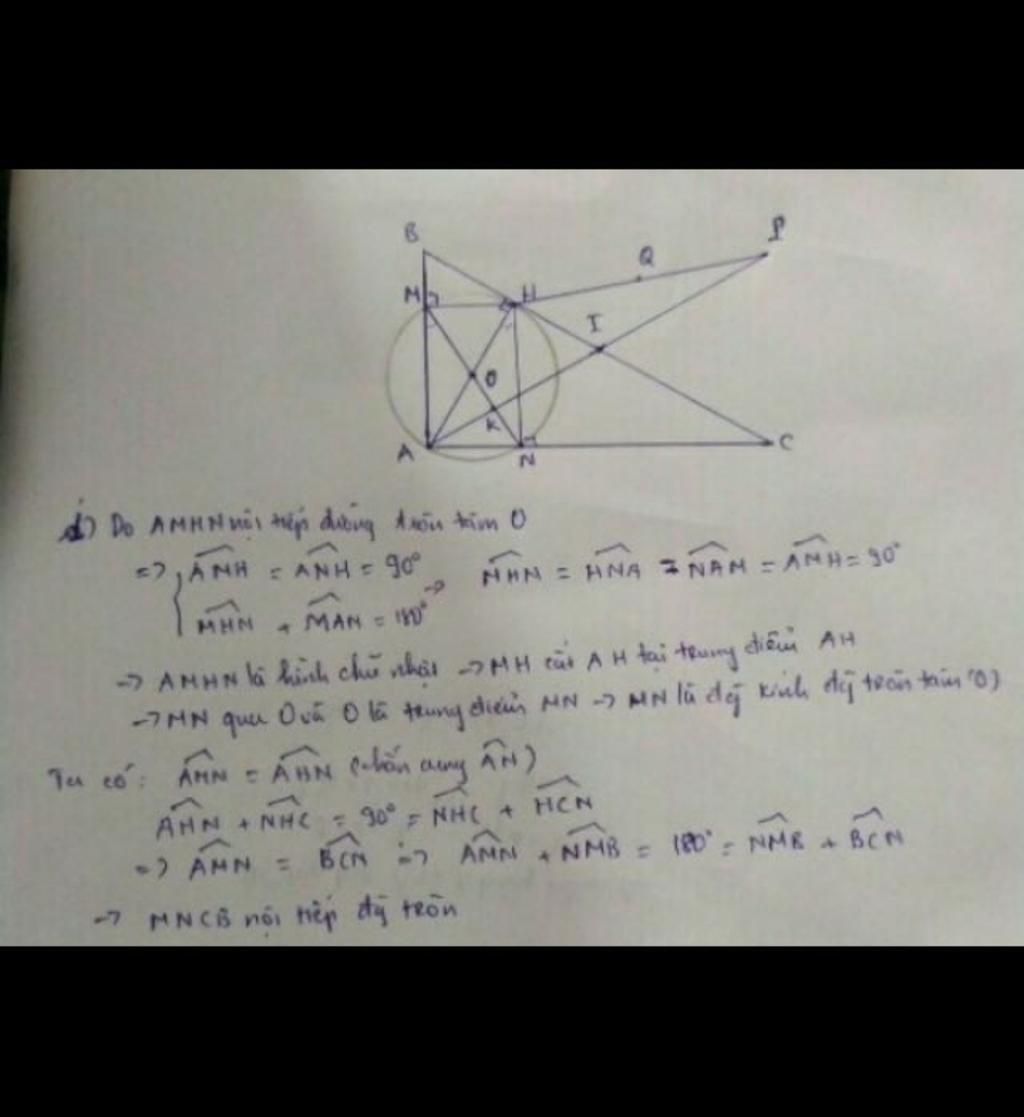 B
P
Q
M
H
I
O
K
A
N
C
d) Do AMHN nội tiếp đường tròn tâm O
=> { \widehat{AMH} = \widehat{ANH} = 90° \widehat{MHN} = \widehat{HNA} = \widehat{NAM} = \widehat{AMH} = 90°
\widehat{MHN} + \widehat{MAN} = 180° ->
-> AMHN là hình chữ nhật -> MH cắt AH tại trung điểm AH
-> MN qua O và O là trung điểm MN -> MN là đg kính đg tròn tâm (O)
Ta có: \widehat{AMN} = \widehat{AHN} (chắn cung \widehat{AN})
\widehat{AHN} + \widehat{NHC} = 90° = \widehat{NHC} + \widehat{HCN}
=> \widehat{AMN} = \widehat{BCN} => \widehat{AMN} + \widehat{NMB} = 180° = \widehat{NMB} + \widehat{BCN}
-> MNCB nội tiếp đg tròn